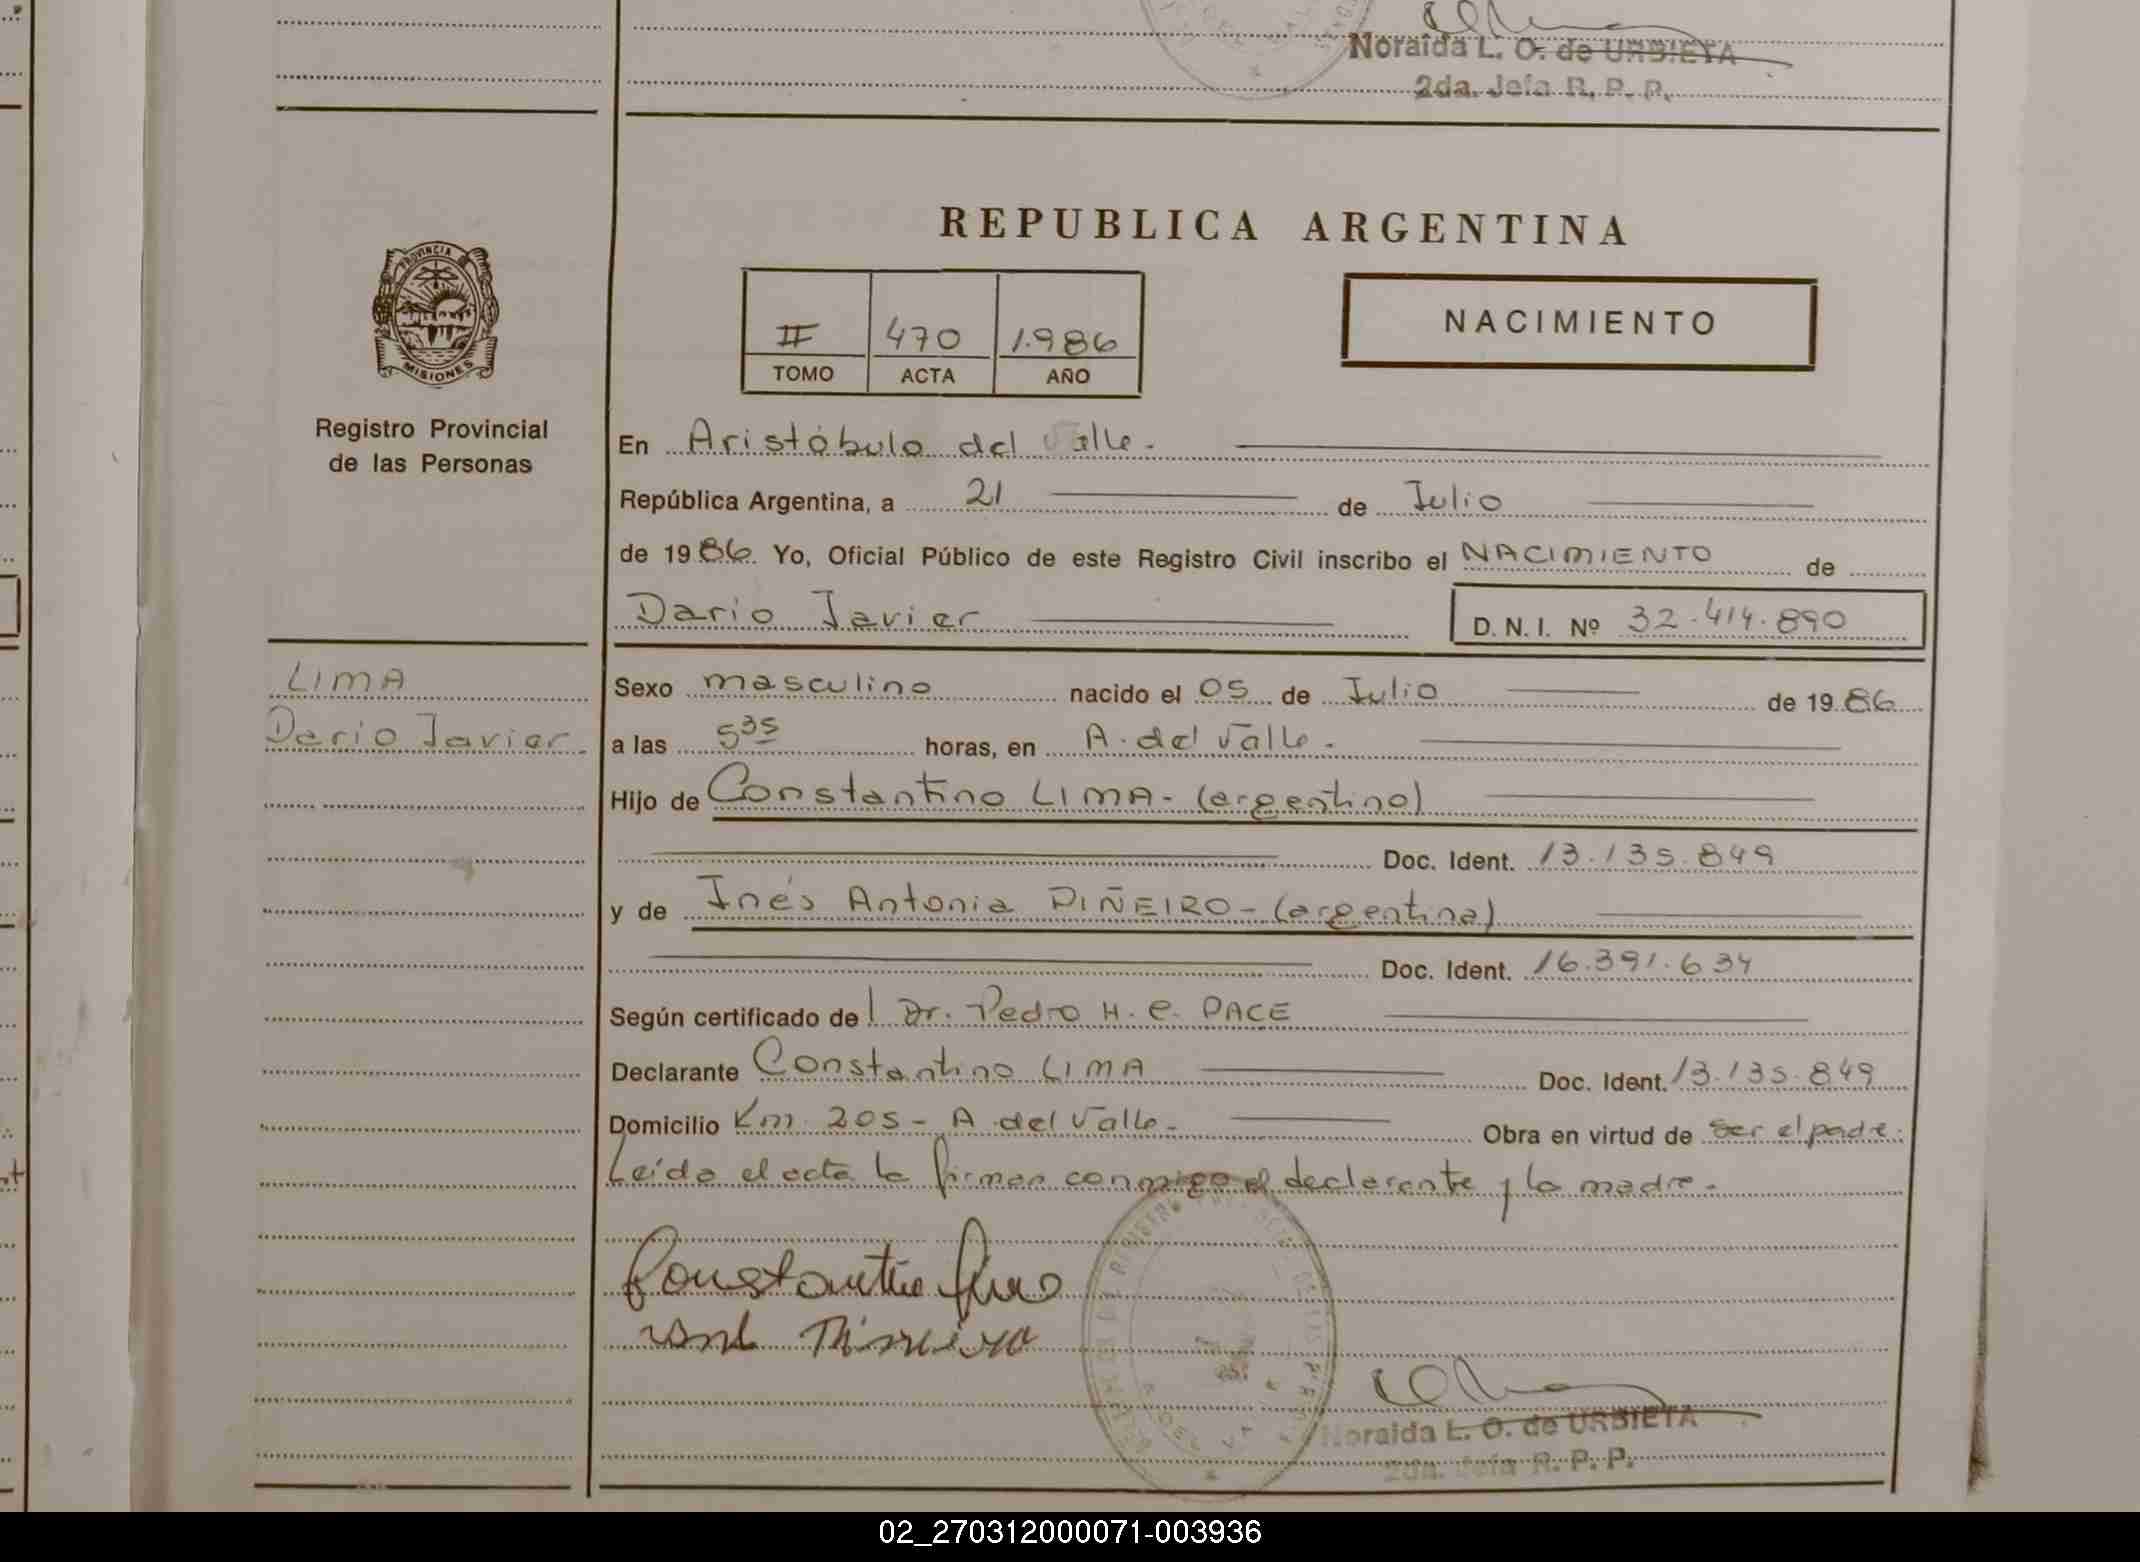 Noraida L. O. de URBIETA
2da. Jefa R. P. P.
REPUBLICA ARGENTINA
PROVINCIA
MISIONES
II 470 1.986
TOMO ACTA AÑO
NACIMIENTO
Registro Provincial
de las Personas
En Aristóbulo del Valle.
República Argentina, a 21 de Julio
de 1986. Yo, Oficial Público de este Registro Civil inscribo el NACIMIENTO de
Dario Javier D. N. I. Nº 32.414.890
LIMA
Dario Javier.
Sexo masculino nacido el 05 de Julio de 1986
a las 5 35 horas, en A. del Valle.
Hijo de Constantino LIMA- (argentino)
Doc. Ident. 13.135.849
y de Inés Antonia PIÑEIRO - (argentina)
Doc. Ident. 16.391.634
Según certificado del Dr. Pedro H. C. PACE
Declarante Constantino LIMA Doc. Ident. 13.135.849
Domicilio Km 205 - A. del Valle. Obra en virtud de ser el padre.
Leída el acta la firman conmigo el declarante y la madre.
Constantino Lima
Piñeiro
Noraida L. O. de URBIETA
2da. Jefa R. P. P.
02_270312000071-003936